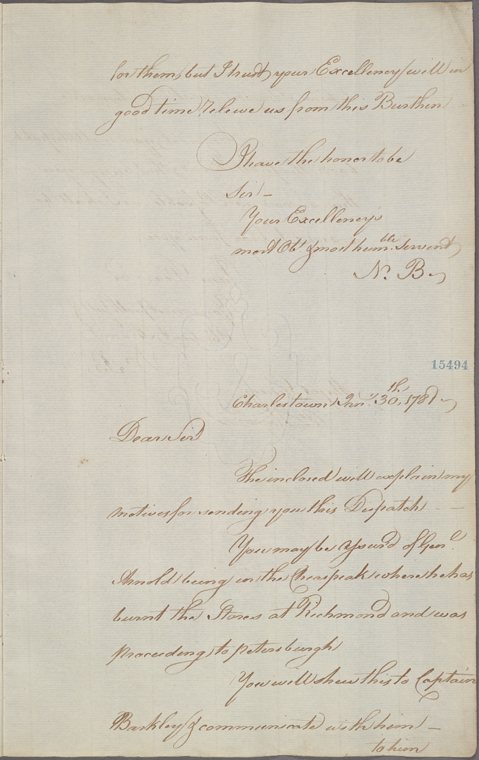 for them, but I trust your Excellency will in
good time releive us from this Burthen
I have the honor to be
Sir –
Your Excellency's
most Obt. & most humble. Servant
N. B
15494
Charlestown Jany. 30th, 1781
Dear Sir
The inclosed will explain my
motives for sending you this Dispatch – –
You may be assur'd of Genl.
Arnold being in the Chesepeak where he has
burnt the Stores at Richmond and was
proceeding to petersburgh
You will shew this to Captain
Barkley & communicate with him –
to him